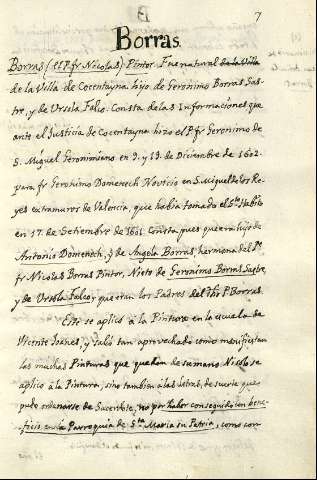 7
Borras.
Borras (El Pe. fr Nicolas) Pintor. Fue natural de la Villa
de la Villa de Cocentayna hijo de Geronimo Borras Sas-
tre, y de Ursola Falco. Consta de las Informaciones que
ante el Justicia de Cocentayna hizo el P. fr Geronimo de
S. Miguel Geronimiano en 9. y 13. de Diciembre de 1602.
para fr Geronimo Domenech Novicio en S. Miguel de los Re-
yes extramuros de Valencia, que habia tomado el Sto. Habito
en 17. de Setiembre de 1601. Consta pues que era hijo de
Antonio Domenech, y de Angela Borras, hermana del Pe.
fr Nicolas Borras Pintor, Nieto de Geronimo Borras Sastre,
y de Ursola Falco, que eran los Padres del dho P. Borras.
Este se aplicó a la Pintura en la escuela de
Vicente Joanes, y salió tan aprovechado como manifiestan
las muchas Pinturas que quedan de su mano. Nicolo se
aplicó a la Pintura, sino tambien a las letras, de suerte que
pudo ordenarse de Sacerdote, no por haber conseguido un bene-
ficio en la Parroquia de Sta. Maria su Patria, como con